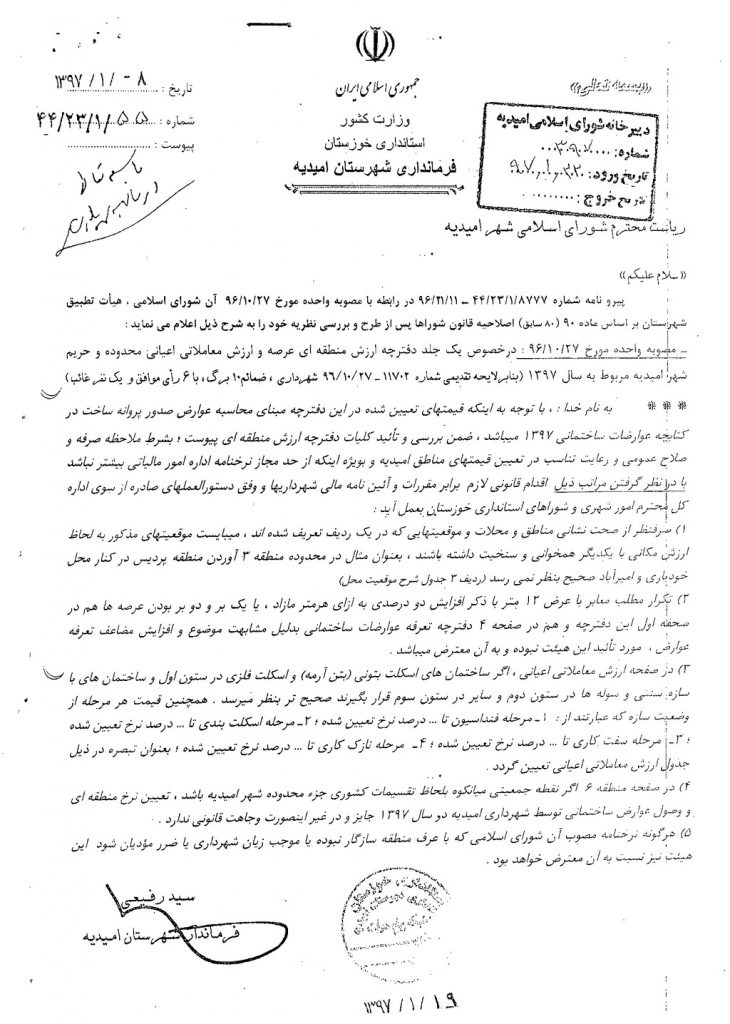 «بسمه تعالی»
جمهوری اسلامی ایران
وزارت کشور
استانداری خوزستان
فرمانداری شهرستان امیدیه
تاریخ : ۱۳۹۷/۱/۰۸
شماره : ۴۴/۲۳/۱/۵۵
پیوست :
دبیرخانه شورای اسلامی امیدیه
شماره:
تاریخ ورود:
تاریخ خروج :
ریاست محترم شورای اسلامی شهر امیدیه
«سلام علیکم»
پیرو نامه شماره ۴۴/۲۳/۱/۸۷۷۷ ــ ۹۶/۱۱/۱۱ در رابطه با مصوبه واحده مورخ ۹۶/۱۰/۲۷ آن شورای اسلامی ، هیأت تطبیق
شهرستان بر اساس ماده ۹۰ (۸۰ سابق) اصلاحیه قانون شوراها پس از طرح و بررسی نظریه خود را به شرح ذیل اعلام می نماید :
ــ مصوبه واحده مورخ ۹۶/۱۰/۲۷ : درخصوص یک جلد دفترچه ارزش منطقه ای عرصه و ارزش معاملاتی اعیانی محدوده و حریم
شهر امیدیه مربوط به سال ۱۳۹۷ (بنابرلایحه تقدیمی شماره ۱۱۷۰۲ ــ ۹۶/۱۰/۲۷ شهرداری ، ضمائم ۱۰ برگ ، با ۶ رأی موافق و یک نفر غائب)
*** به نام خدا : ، با توجه به اینکه قیمتهای تعیین شده در این دفترچه مبنای محاسبه عوارض صدور پروانه ساخت در
کتابچه عوارضات ساختمانی ۱۳۹۷ میباشد ، ضمن بررسی و تأئید کلیات دفترچه ارزش منطقه ای پیوست ؛ بشرط ملاحظه صرفه و
صلاح عمومی و رعایت تناسب در تعیین قیمتهای مناطق امیدیه و بویژه اینکه از حد مجاز نرخنامه اداره امور مالیاتی بیشتر نباشد
با در نظر گرفتن مراتب ذیل اقدام قانونی لازم برابر مقررات و آئین نامه مالی شهرداریها و وفق دستورالعملهای صادره از سوی اداره
کل محترم امور شهری و شوراهای استانداری خوزستان بعمل آید :
۱) صرفنظر از صحت نشانی مناطق و محلات و موقعیتهایی که در یک ردیف تعریف شده اند ، میبایست موقعیتهای مذکور به لحاظ
ارزش مکانی با یکدیگر همخوانی و سنخیت داشته باشند ، بعنوان مثال در محدوده منطقه ۳ آوردن منطقه پردیس در کنار محل
خودیاری و امیرآباد صحیح بنظر نمی رسد (ردیف ۳ جدول شرح موقعیت محل)
۲) تکرار مطلب معابر با عرض ۱۲ متر با ذکر افزایش دو درصدی به ازای هرمتر مازاد ، یا یک بر و دو بر بودن عرصه ها هم در
صحفه اول این دفترچه و هم در صفحه ۴ دفترچه تعرفه عوارضات ساختمانی بدلیل مشابهت موضوع و افزایش مضاعف تعرفه
عوارض ، مورد تأئید این هیئت نبوده و به آن معترض میباشد .
۳) در صفحه ارزش معاملاتی اعیانی ، اگر ساختمان های اسکلت بتونی (بتن آرمه) و اسکلت فلزی در ستون اول و ساختمان های با
سازه سنتی و سوله ها در ستون دوم و سایر در ستون سوم قرار بگیرند صحیح تر بنظر میرسد . همچنین قیمت هر مرحله از
وضعیت سازه که عبارتند از : ۱ــ مرحله فنداسیون تا ... درصد نرخ تعیین شده ؛ ۲ــ مرحله اسکلت بندی تا ... درصد نرخ تعیین شده
؛ ۳ــ مرحله سفت کاری تا ... درصد نرخ تعیین شده ؛ ۴ــ مرحله نازک کاری تا ... درصد نرخ تعیین شده ؛ بعنوان تبصره در ذیل
جدول ارزش معاملاتی اعیانی تعیین گردد .
۴) در صفحه منطقه ۶ اگر نقطه جمعیتی میانکوه بلحاظ تقسیمات کشوری جزء محدوده شهر امیدیه باشد ، تعیین نرخ منطقه ای
و وصول عوارض ساختمانی توسط شهرداری امیدیه در سال ۱۳۹۷ جایز و در غیر اینصورت وجاهت قانونی ندارد .
۵) هرگونه نرخنامه مصوب آن شورای اسلامی که با عرف منطقه سازگار نبوده یا موجب زیان شهرداری یا ضرر مؤدیان شود این
هیئت نیز نسبت به آن معترض خواهد بود .
سید رفیعی
فرماندار شهرستان امیدیه
۱۳۹۷/۱/۱۹